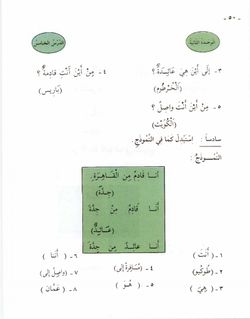 - ٥٠ -
الوحدة الثانية
الدرس الخامس
٣- إلى أين هي عائدة ؟ ٤- من أين أنت قادمة ؟
(الخرطوم) (باريس)
٥- من أين أنت واصل ؟
(الكويت)
سادسا : استبدل كما في النموذج
النموذج :
أنا قادم من القاهرة
(جدة)
أنا قادم من جدة
(عائد)
أنا عائد من جدة
١- ( أنت ) ٦- ( أنا )
٢- ( طوكيو ) ٤- ( مسافرة إلى ) ٧- ( واصل إلى )
٣- ( هي ) ٥- ( هو ) ٨- ( عمان )